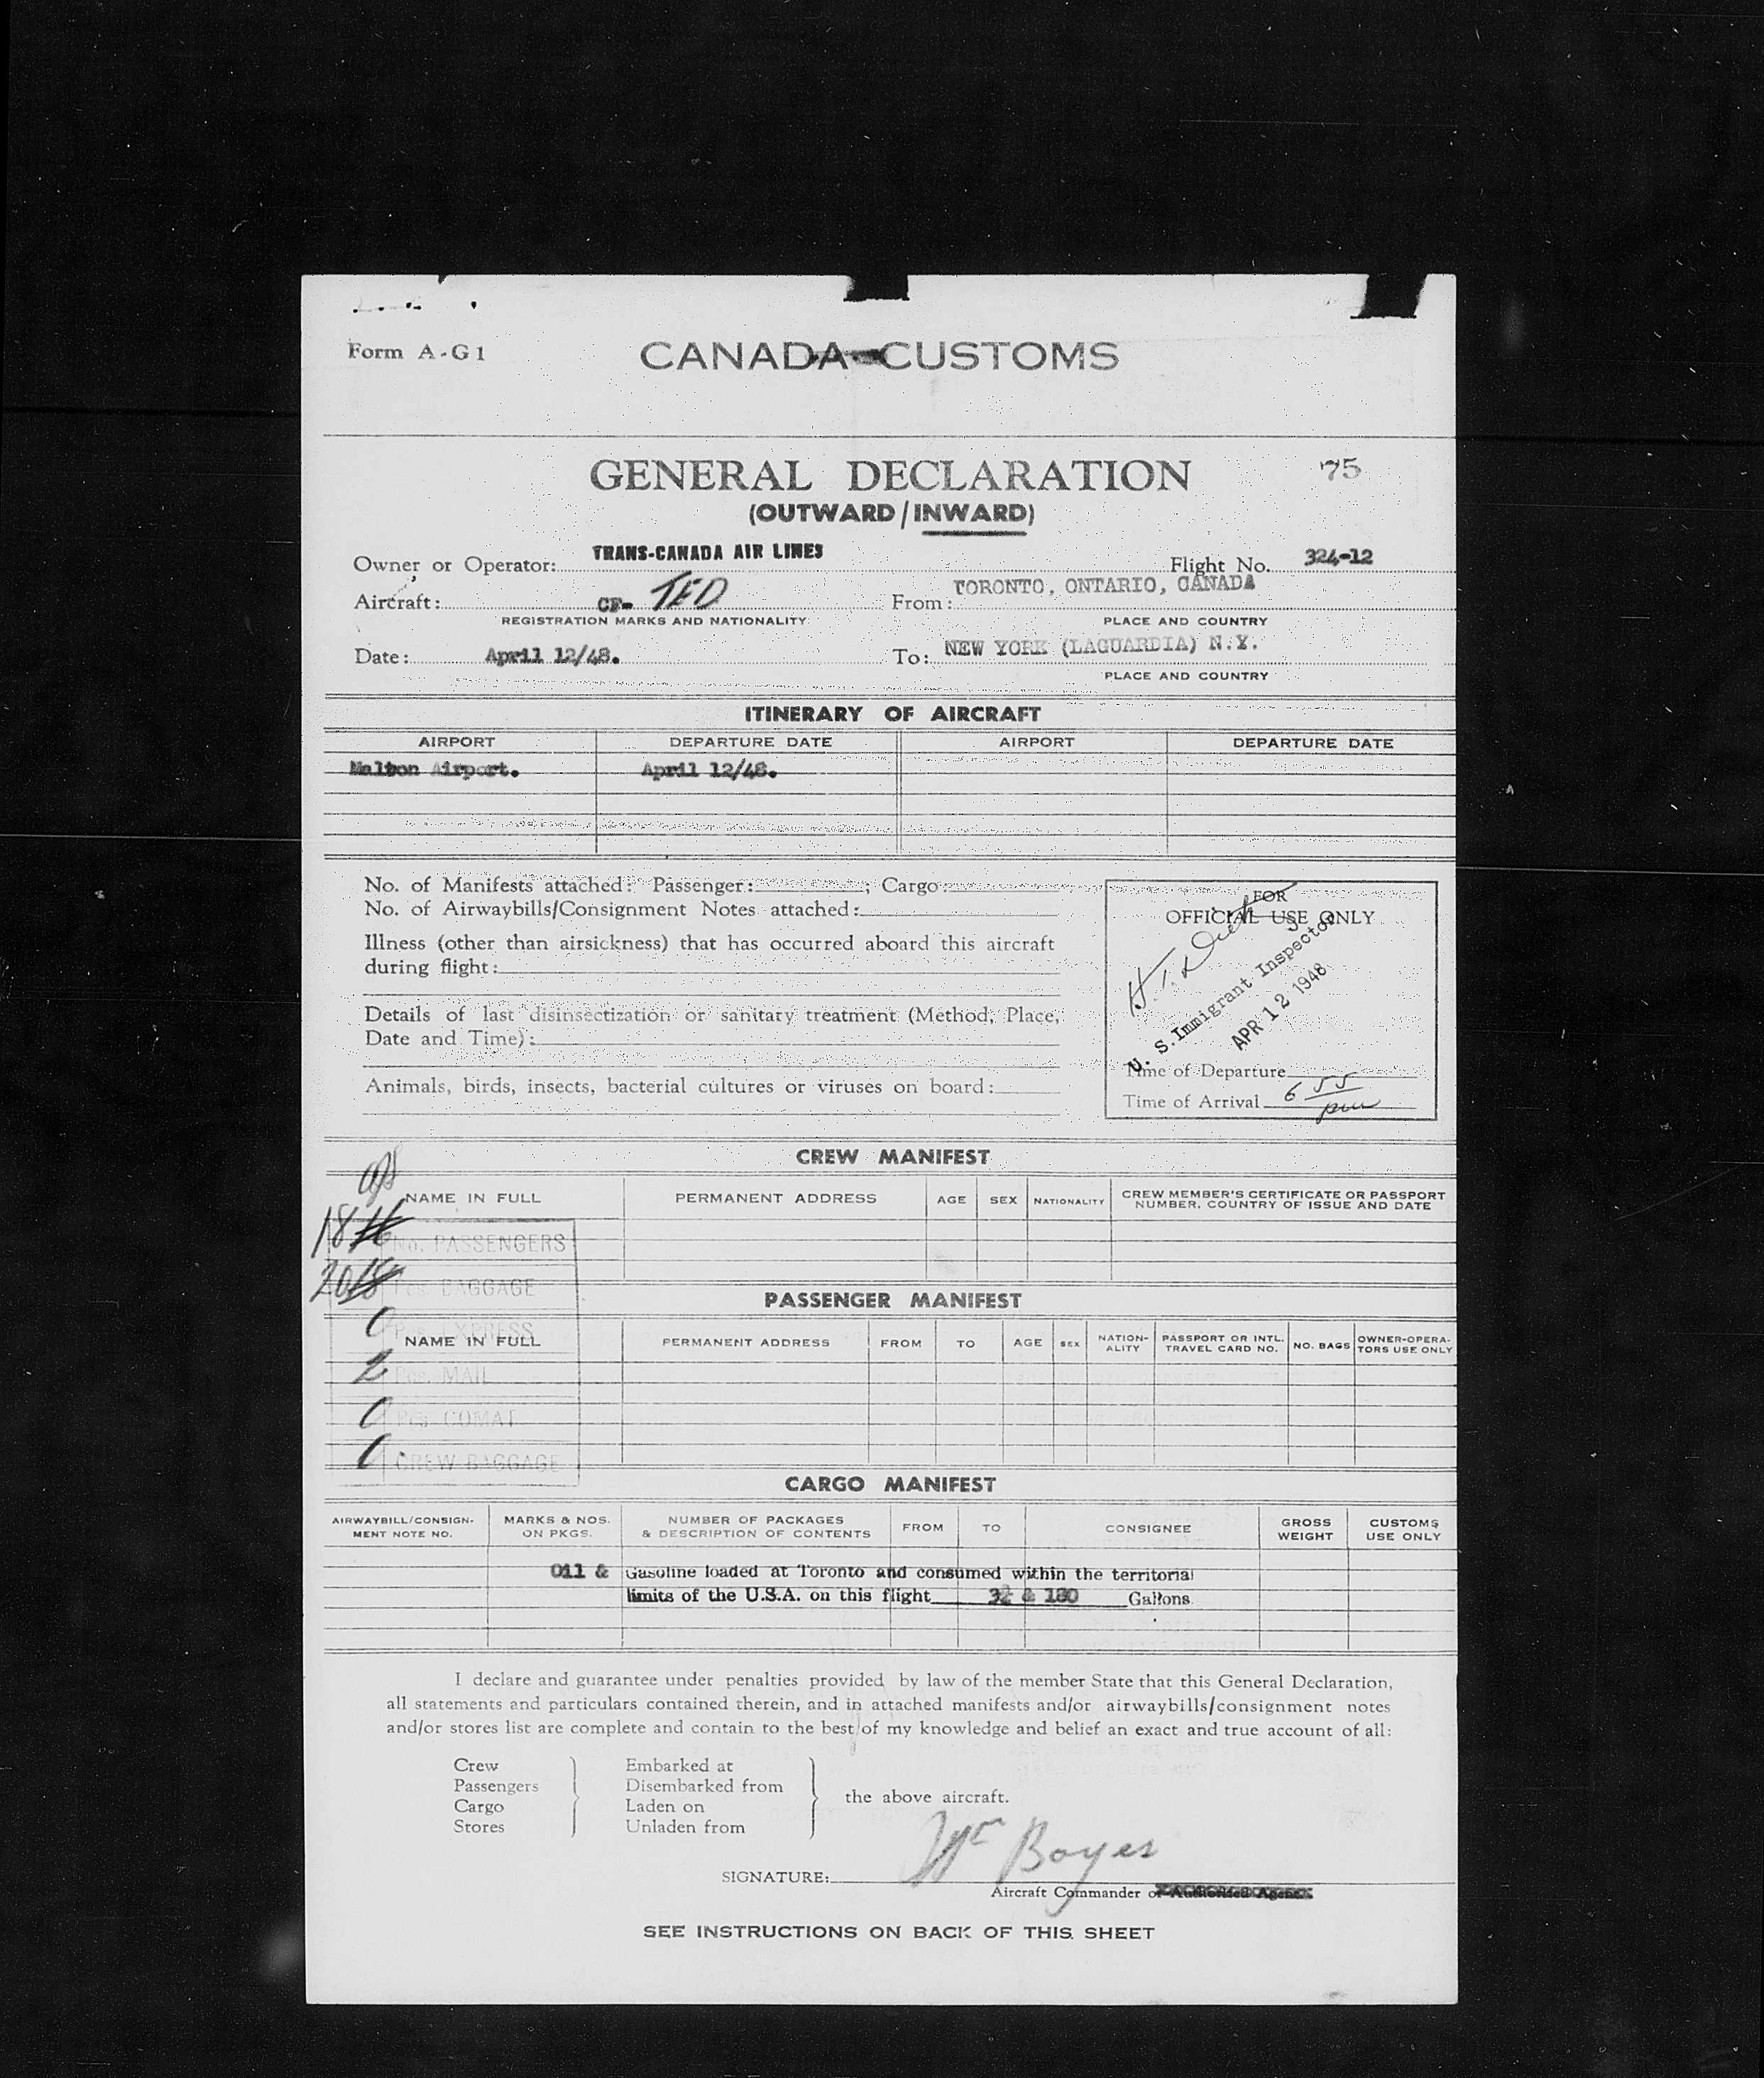 Form A-G1
CANADA CUSTOMS
GENERAL DECLARATION
75
(OUTWARD/INWARD)
Owner or Operator: TRANS-CANADA AIR LINES
Flight No. 324-12
Aircraft: CF- TED
From: TORONTO, ONTARIO, CANADA
REGISTRATION MARKS AND NATIONALITY
PLACE AND COUNTRY
Date: April 12/48.
To: NEW YORK (LAGUARDIA) N.Y.
PLACE AND COUNTRY
ITINERARY OF AIRCRAFT
AIRPORT DEPARTURE DATE AIRPORT DEPARTURE DATE
Malton Airport. April 12/48.
No. of Manifests attached: Passenger: ; Cargo
No. of Airwaybills/Consignment Notes attached:
Illness (other than airsickness) that has occurred aboard this aircraft
during flight:
Details of last disinsectization or sanitary treatment (Method, Place,
Date and Time):
Animals, birds, insects, bacterial cultures or viruses on board:
FOR
OFFICIAL USE ONLY
U. S. Immigrant Inspector
APR 12 1948
Time of Departure
Time of Arrival 6 55
pm
CREW MANIFEST
NAME IN FULL PERMANENT ADDRESS AGE SEX NATIONALITY CREW MEMBER'S CERTIFICATE OR PASSPORT
NUMBER, COUNTRY OF ISSUE AND DATE
18 16 No. PASSENGERS
20 18 Pcs. BAGGAGE
0 Pcs. EXPRESS
2 Pcs. MAIL
0 Pcs. COMAT
CREW BAGGAGE
PASSENGER MANIFEST
NAME IN FULL PERMANENT ADDRESS FROM TO AGE SEX NATION-
ALITY PASSPORT OR INTL.
TRAVEL CARD NO. NO. BAGS OWNER-OPERA-
TORS USE ONLY
CARGO MANIFEST
AIRWAYBILL/CONSIGN-
MENT NOTE NO. MARKS & NOS.
ON PKGS. NUMBER OF PACKAGES
& DESCRIPTION OF CONTENTS FROM TO CONSIGNEE GROSS
WEIGHT CUSTOMS
USE ONLY
Oil & Gasoline loaded at Toronto and consumed within the territorial
limits of the U.S.A. on this flight 3½ & 180 Gallons
I declare and guarantee under penalties provided by law of the member State that this General Declaration,
all statements and particulars contained therein, and in attached manifests and/or airwaybills/consignment notes
and/or stores list are complete and contain to the best of my knowledge and belief an exact and true account of all:
Crew
Passengers
Cargo
Stores
Embarked at
Disembarked from
Laden on
Unladen from
the above aircraft.
SIGNATURE: Boyes
Aircraft Commander or Authorised Agent.
SEE INSTRUCTIONS ON BACK OF THIS SHEET